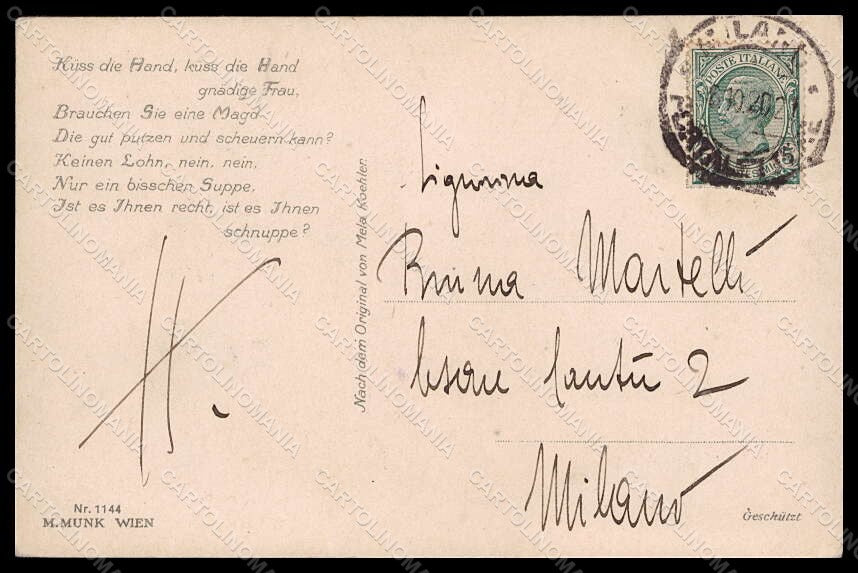 Küss die Hand, küss die Hand
gnädige Frau,
Brauchen Sie eine Magd
Die gut putzen und scheuern kann?
Keinen Lohn, nein, nein,
Nur ein bisschen Suppe,
Ist es Ihnen recht, ist es Ihnen
schnuppe?
H.
Nr. 1144
M. MUNK WIEN
Nach dem Original von Mela Koehler.
POSTE ITALIANE
MILANO
Signorina
Martelli
Cantù 2
Milano
Geschützt
CARTOLINOMANIA